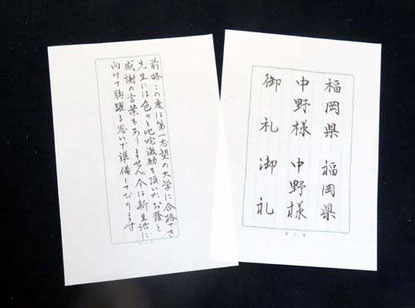 福岡県 福岡県
中野様 中野様
御礼 御礼
前略この度は第一志望の大学に合格でき
先生には色々と叱咤激励を頂いたお蔭と
感謝の言葉もありません今は新生活に
向けて胸躍る思いで準備しております